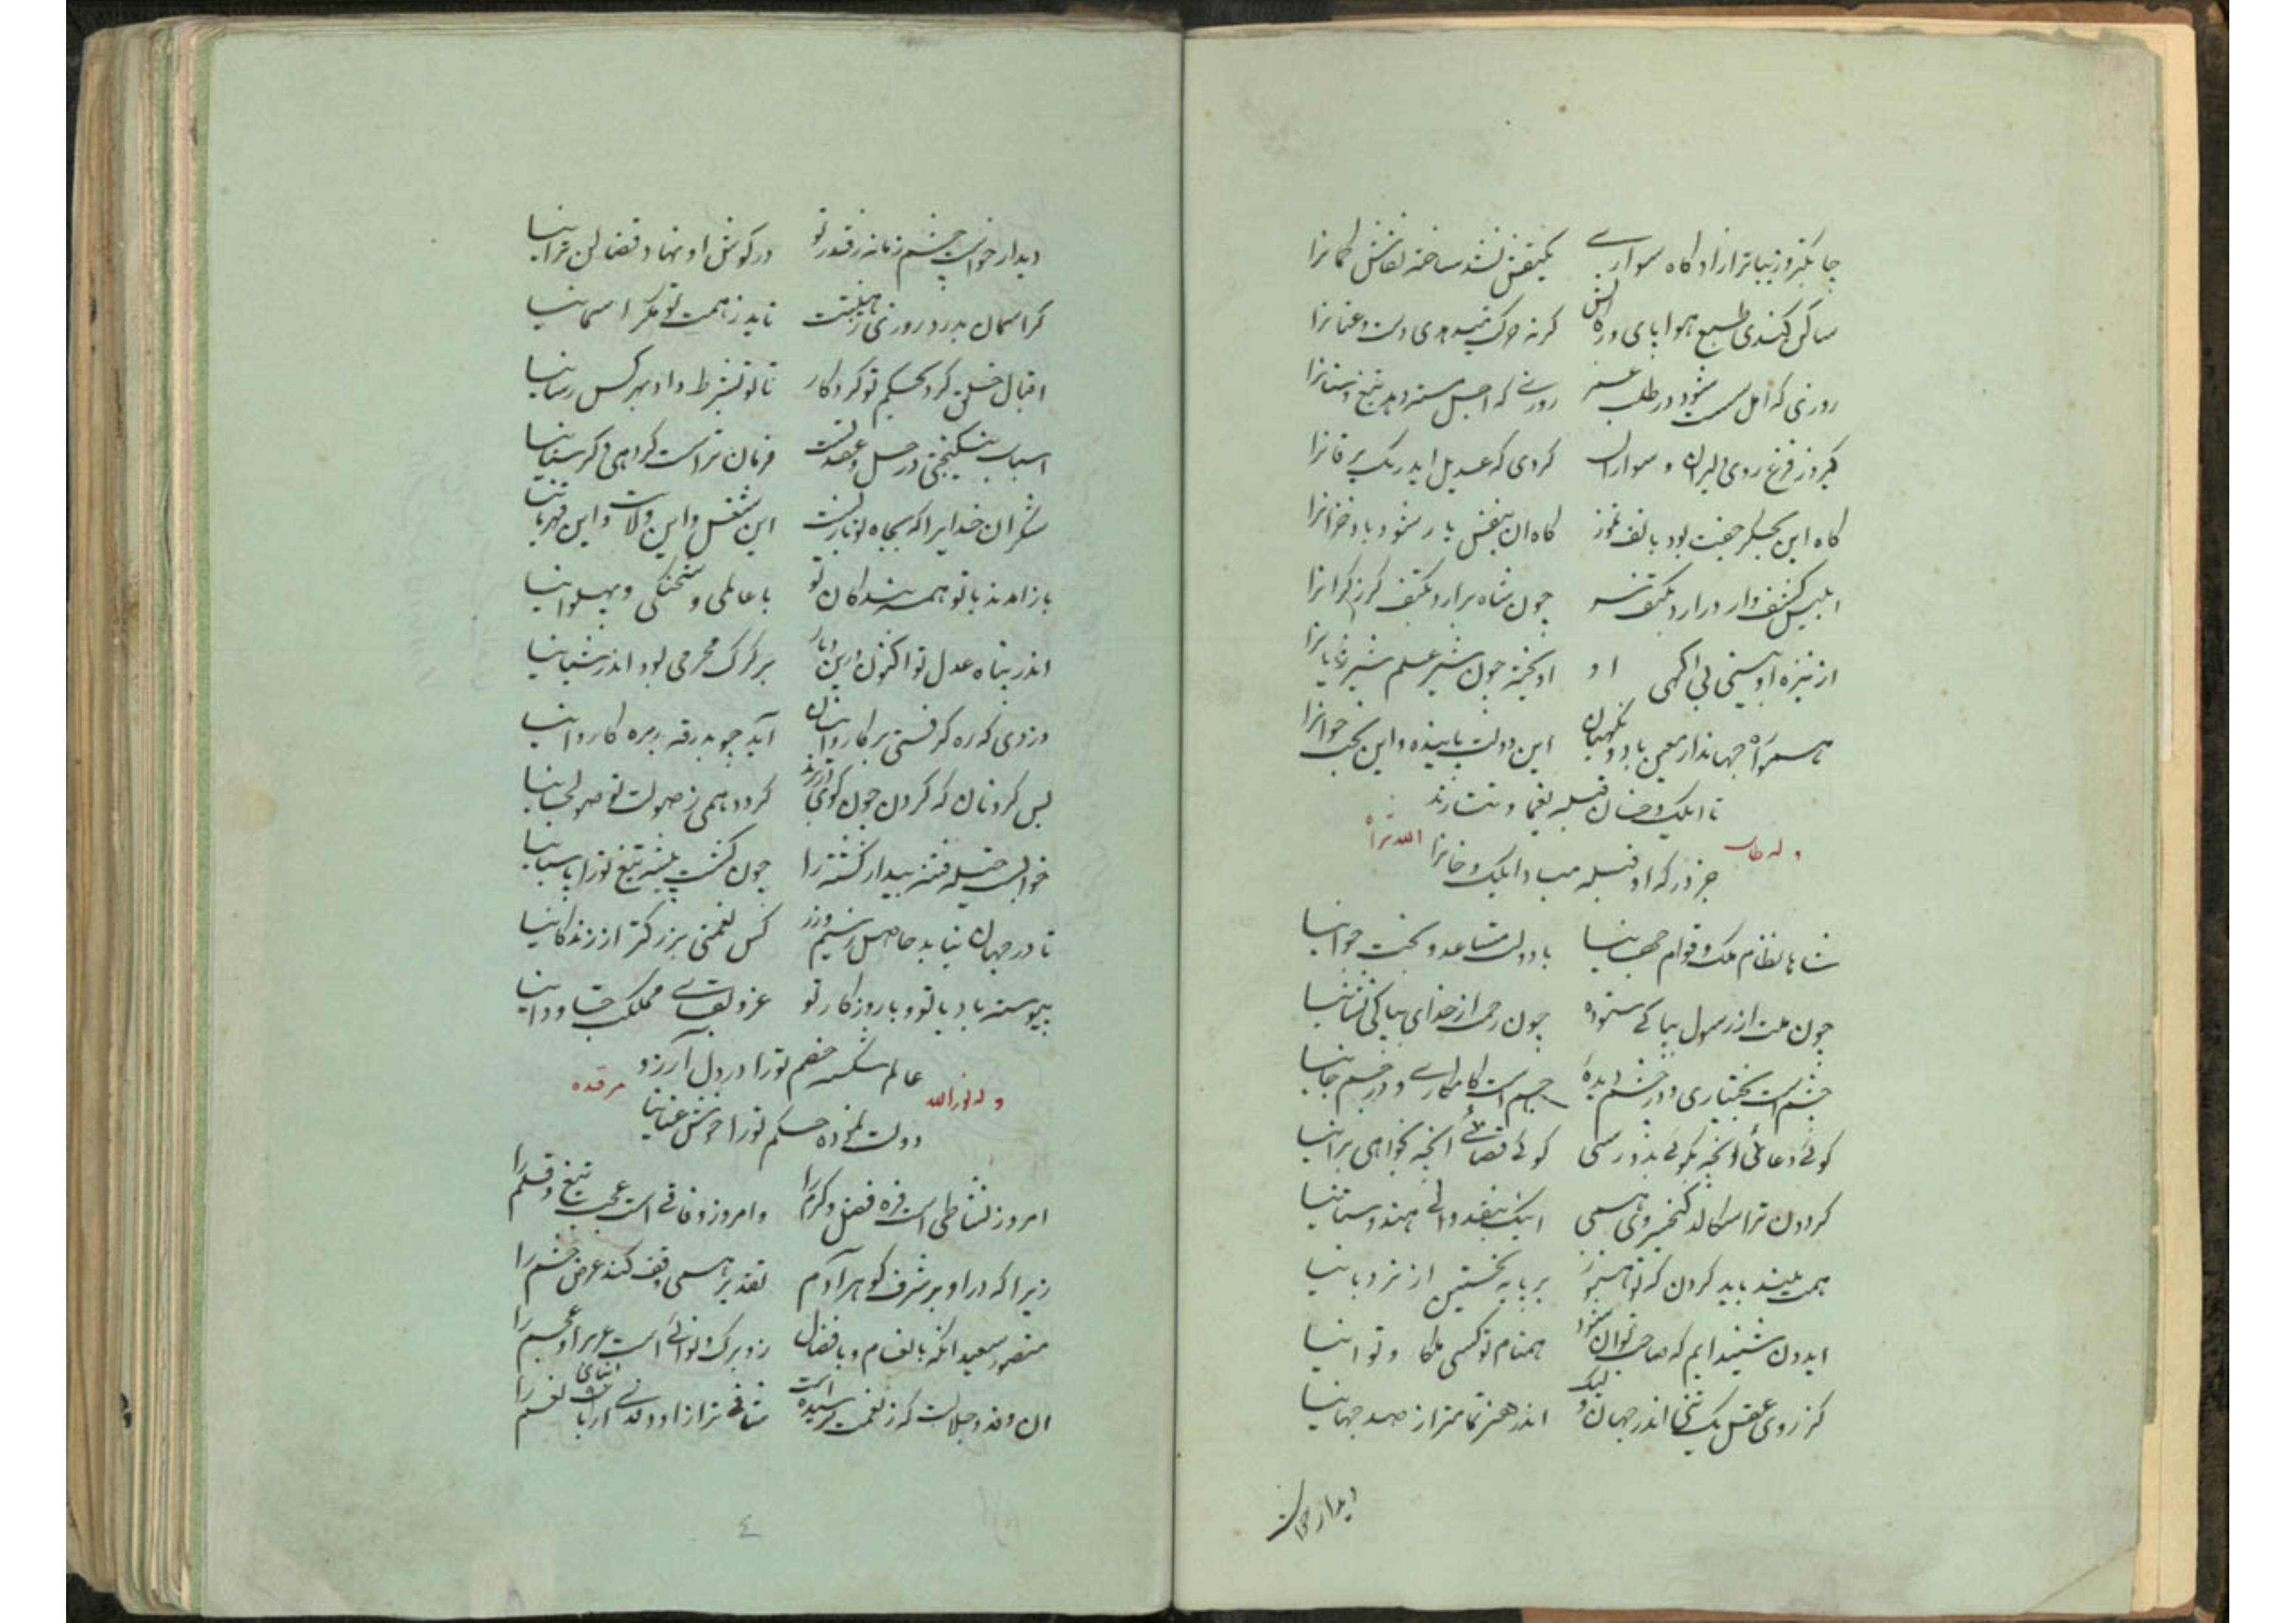 چابکتر و زیباتر ازاد کاه سوارے یکنقش نشد ساخته نقاش کمانرا
ساکن کندی طبع هوا پای درکابش کرنه حرکت میدهدی دست و عنانرا
روزی که امل سست شود در طلب عمر روزے که اجل سسته دهد تیغ و سنانرا
کیرد ز فزع روی دلیران و سواران کردی که عدیل اید رنک یرقانرا
کاه این بجکر جفت بود با تف تموز کاه ان بنفس یار شود باد خزانرا
ابلیس کشف وار درارد بکتف سر چون شاه برارد بکتف کرز کرانرا
از نیزه او بینی بی اکهی او اویخته چون شیر علم شیر ژیانرا
همواره جهاندار معین باد و نکهبان این دولت پاینده و این بخت جوانرا
تا ایلک و خان قبله یغما و تتارند
وله طاب الله ثراه
جز درکه او قبله مباد ایلک و خانرا
شاها نظام ملک و قوام جهانیا با دولت مساعد و بخت جوانیا
چون ملت از رسول بپاکے ستوده چون رحمت از خدای بپاکی نشانیا
چشم است بختیاری و در چشم دیدهٔ جسم است کامکارے و در جسم جانیا
کوئے دعائی انچه بکوئے بدو رسی کوئے قضائے انچه بخواهی برانیا
کردون ترا سکالد کیخسروی همی اینک بنقد والے هندوستانیا
همت بلند باید کردن که تو هنوز بر پایه نخستین از نردبانیا
ایدون شنیدایم که صاحبقران شود همنام تو کسی ملکا و تو انیا
کز روی عقل یک تنی اندر جهان و لیک اندر هنر تمامتر از صد جهانیا
دیدار خواست
دیدار خواست چشم زمانه ز قدر تو در کوش او نهاد قضا لن ترانیا
کر اسمان بدرد روزی ز هیبتت ناید ز همت تو مکر اسمانیا
اقبال خلق کرد بحکم تو کردکار تا تو بشرط داد بهر کس رسانیا
اسباب نیکبختی در حل و عقد تست فرمان تراست کر دهی و کر ستانیا
شکر ان خدایرا که بجاه تو بازبست این شغل و این ولایت و این قهرمانیا
باز امدند با تو همه بندکان تو با عاملی و شحنکی و پهلوانیا
اندر پناه عدل تو اکنون درین دیار بر کرک محرمی بود اندر شبانیا
دزدی که ره کرفتی بر کاروانیان آید چو بدرقه بره کاروانیا
بس کردنان که کردن چون کوی اورند کردد همی ز صولت تو صولجانیا
خوابست حیله فتنه بیدار کشته را چون کشت بیشه تیغ تو را پاسبانیا
تا در جهان نیابد حاصل ز سیم و زر کس نعمتی بزرکتر از زندکانیا
پیوسته باد با تو و با روزکار تو عز و بقاے مملکت جاودانیا
عالم شکسته خصم تو را در دل آرزو
وله نورالله مرقده
دولت نموده حکم تو را خوش عنانیا
امروز نشاطی است فره فضل و کرم را و امروز وفاقے است عجب تیغ و قلم را
زیرا که در او بر شرف کوهر آدم تقدیر همی وقف کند عرض حشم را
منصور سعید انکه بانعام و بافضال زو برک و نوائے است عرب را و عجم را
ان وفد و جلالت که ز نعمت نرسیده است مشافے تر ازاد و لدنے ارباب نعم را
٤